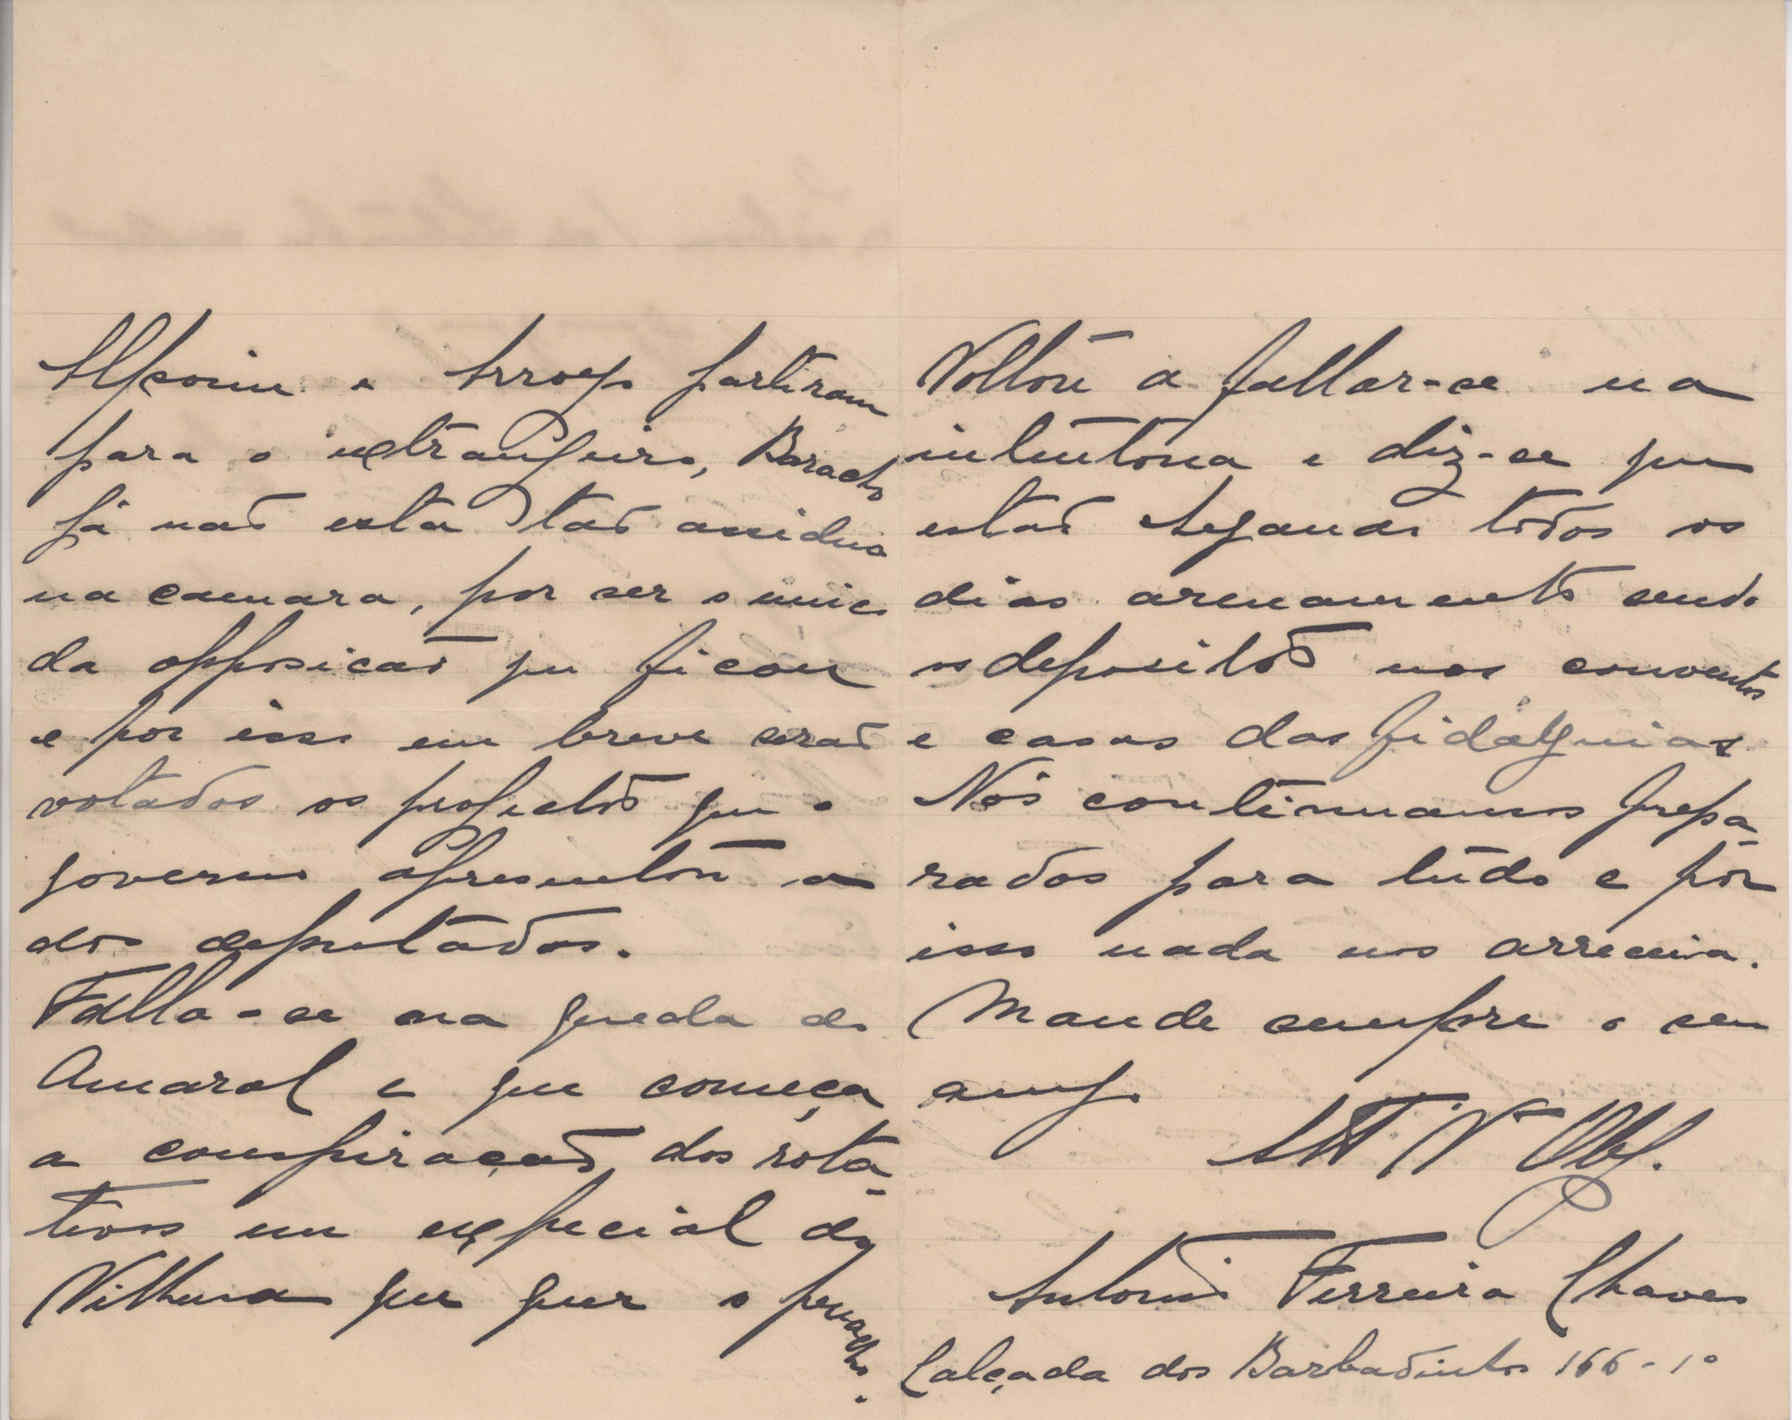 Alpoim e Arroyo partiram
para o extrangeiro, Baracho
já não esta tão assiduo
na camara, por ser o unico
da opposicão que ficou
e por isso em breve serão
votados os projectos que o
governo apresentou a
dos deputados.
Falla-se na queda do
Amaral e que começa
a conspiração dos rota-
tivos em especial do
Vilhena que quer o penacho.
Voltou a fallar-se na
intentona e diz-se que
estão chegando todos os
dias armamento sendo
os depositos nos conventos
e casas das fidalguias
Nós continuamos prepa-
rados para tudo e por
isso nada nos arreceia.
Mande sempre o seu
amgo
Att Vor Obgo.
Antonio Ferreira Chaves
Calçada dos Barbadinhos 166-1º